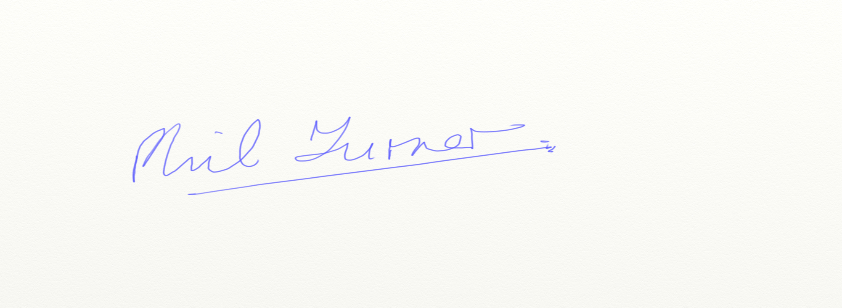 Phil Turner